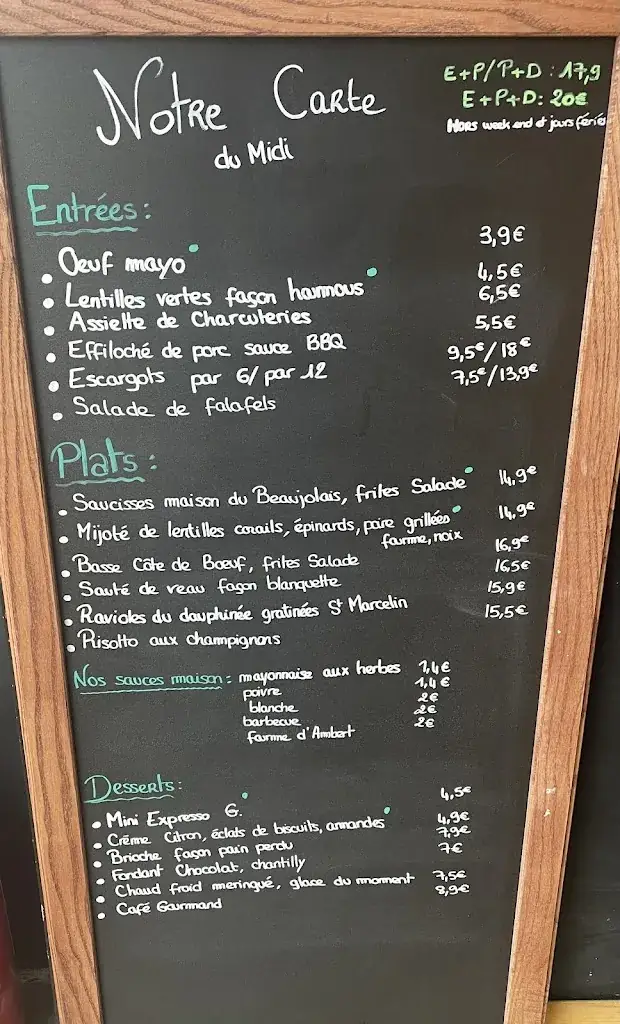 Notre Carte
du Midi
E+P/P+D : 17,9
E+P+D: 20€
Hors week end et jours fériés
Entrées :
• Oeuf mayo 3,9€
• Lentilles vertes façon hoummous 4,5€
• Assiette de Charcuteries 6,5€
• Effiloché de porc sauce BBQ 5,5€
• Escargots par 6/ par 12 9,5€/18€
• Salade de falafels 7,5€/13,9€
Plats :
• Saucisses maison du Beaujolais, frites Salade 14,9€
• Mijoté de lentilles corails, épinards, poire grillées 14,9€
fourme, noix
• Basse Côte de Bœuf, frites Salade 16,9€
• Sauté de veau façon blanquette 16,5€
• Ravioles du dauphinée gratinées St Marcelin 15,9€
• Risotto aux champignons 15,5€
Nos sauces maison : mayonnaise aux herbes 1,4€
poivre 1,4€
blanche 2€
barbecue 2€
fourme d'Ambert 2€
Desserts :
• Mini Expresso G. 4,5€
• Crème Citron, éclats de biscuits, amandes 4,9€
• Brioche façon pain perdu 7,9€
• Fondant Chocolat, chantilly 7€
• Chaud froid meringué, glace du moment 7,5€
• Café Gourmand 8,9€